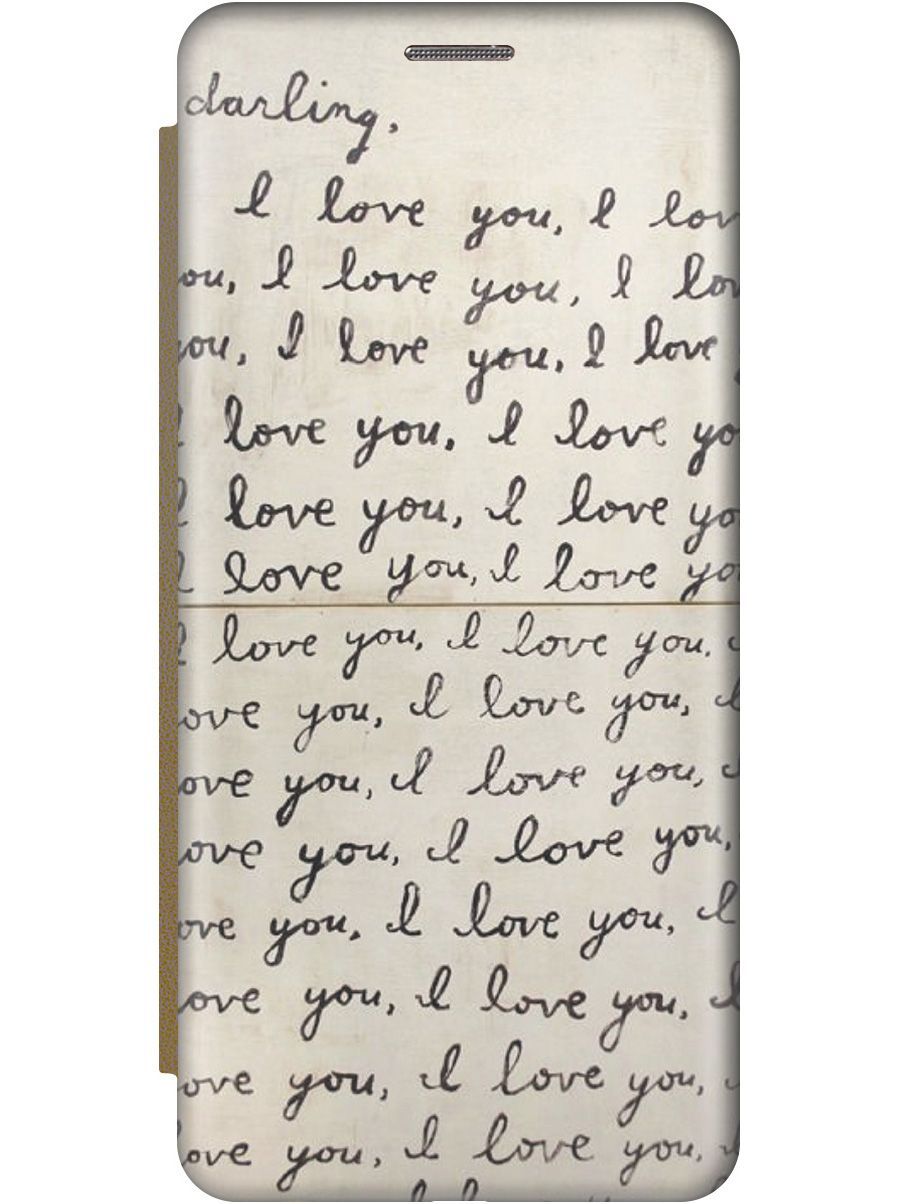 darling,
I love you, I lov
ou, I love you, I lov
you, I love you, I love
I love you, I love yo
I love you, I love yo
I love you, I love yo
I love you, I love you,
ove you, I love you, I
ove you, I love you,
ove you, I love you,
ove you, I love you, I
ove you, I love you, I
ove you, I love you,
ove you, I love you, I